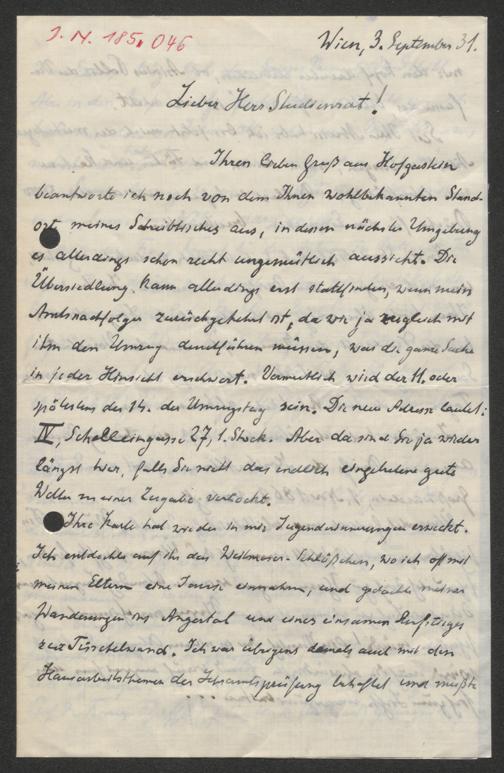 J. N. 185.046
Wien, 3. September 31.
Lieber Herr Studienrat!
Ihren lieben Gruß aus Hofgastein
beantworte ich noch von dem Ihnen wohlbekannten Stand-
ort meines Schreibtisches aus, in dessen nächster Umgebung
es allerdings schon recht ungemütlich aussieht. Die
Übersiedlung kann allerdings erst stattfinden, wenn mein
Amtsnachfolger zurückgekehrt ist, da wir ja zugleich mit
ihm den Umzug durchführen müssen, was die ganze Sache
in jeder Hinsicht erschwert. Vermutlich wird der 11. oder
spätestens der 14. der Umzugstag sein. Die neue Adresse lautet:
IV, Schelleingasse 27, 1. Stock. Aber da sind Sie ja wieder
längst hier, falls Sie nicht das endlich eingetretene gute
Wetter zu einer Zugabe verlockt.
Ihre Karte hat wieder in mir Jugenderinnerungen erweckt.
Ich entdeckte auf ihr das Weitmoser-Schlößchen, wo ich oft mit
meinen Eltern eine Jause einnahm, und gedachte meiner
Wanderungen ins Angertal und eines einsamen Aufstieges
zur Tischelwand. Ich war übrigens damals auch mit den
Hausarbeitsthemen der Lehramtsprüfung behaftet und mußte